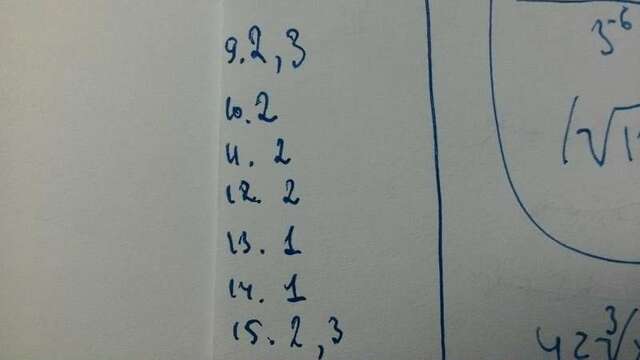 9. 2, 3
10. 2
11. 2
12. 2
13. 1
14. 1
15. 2, 3